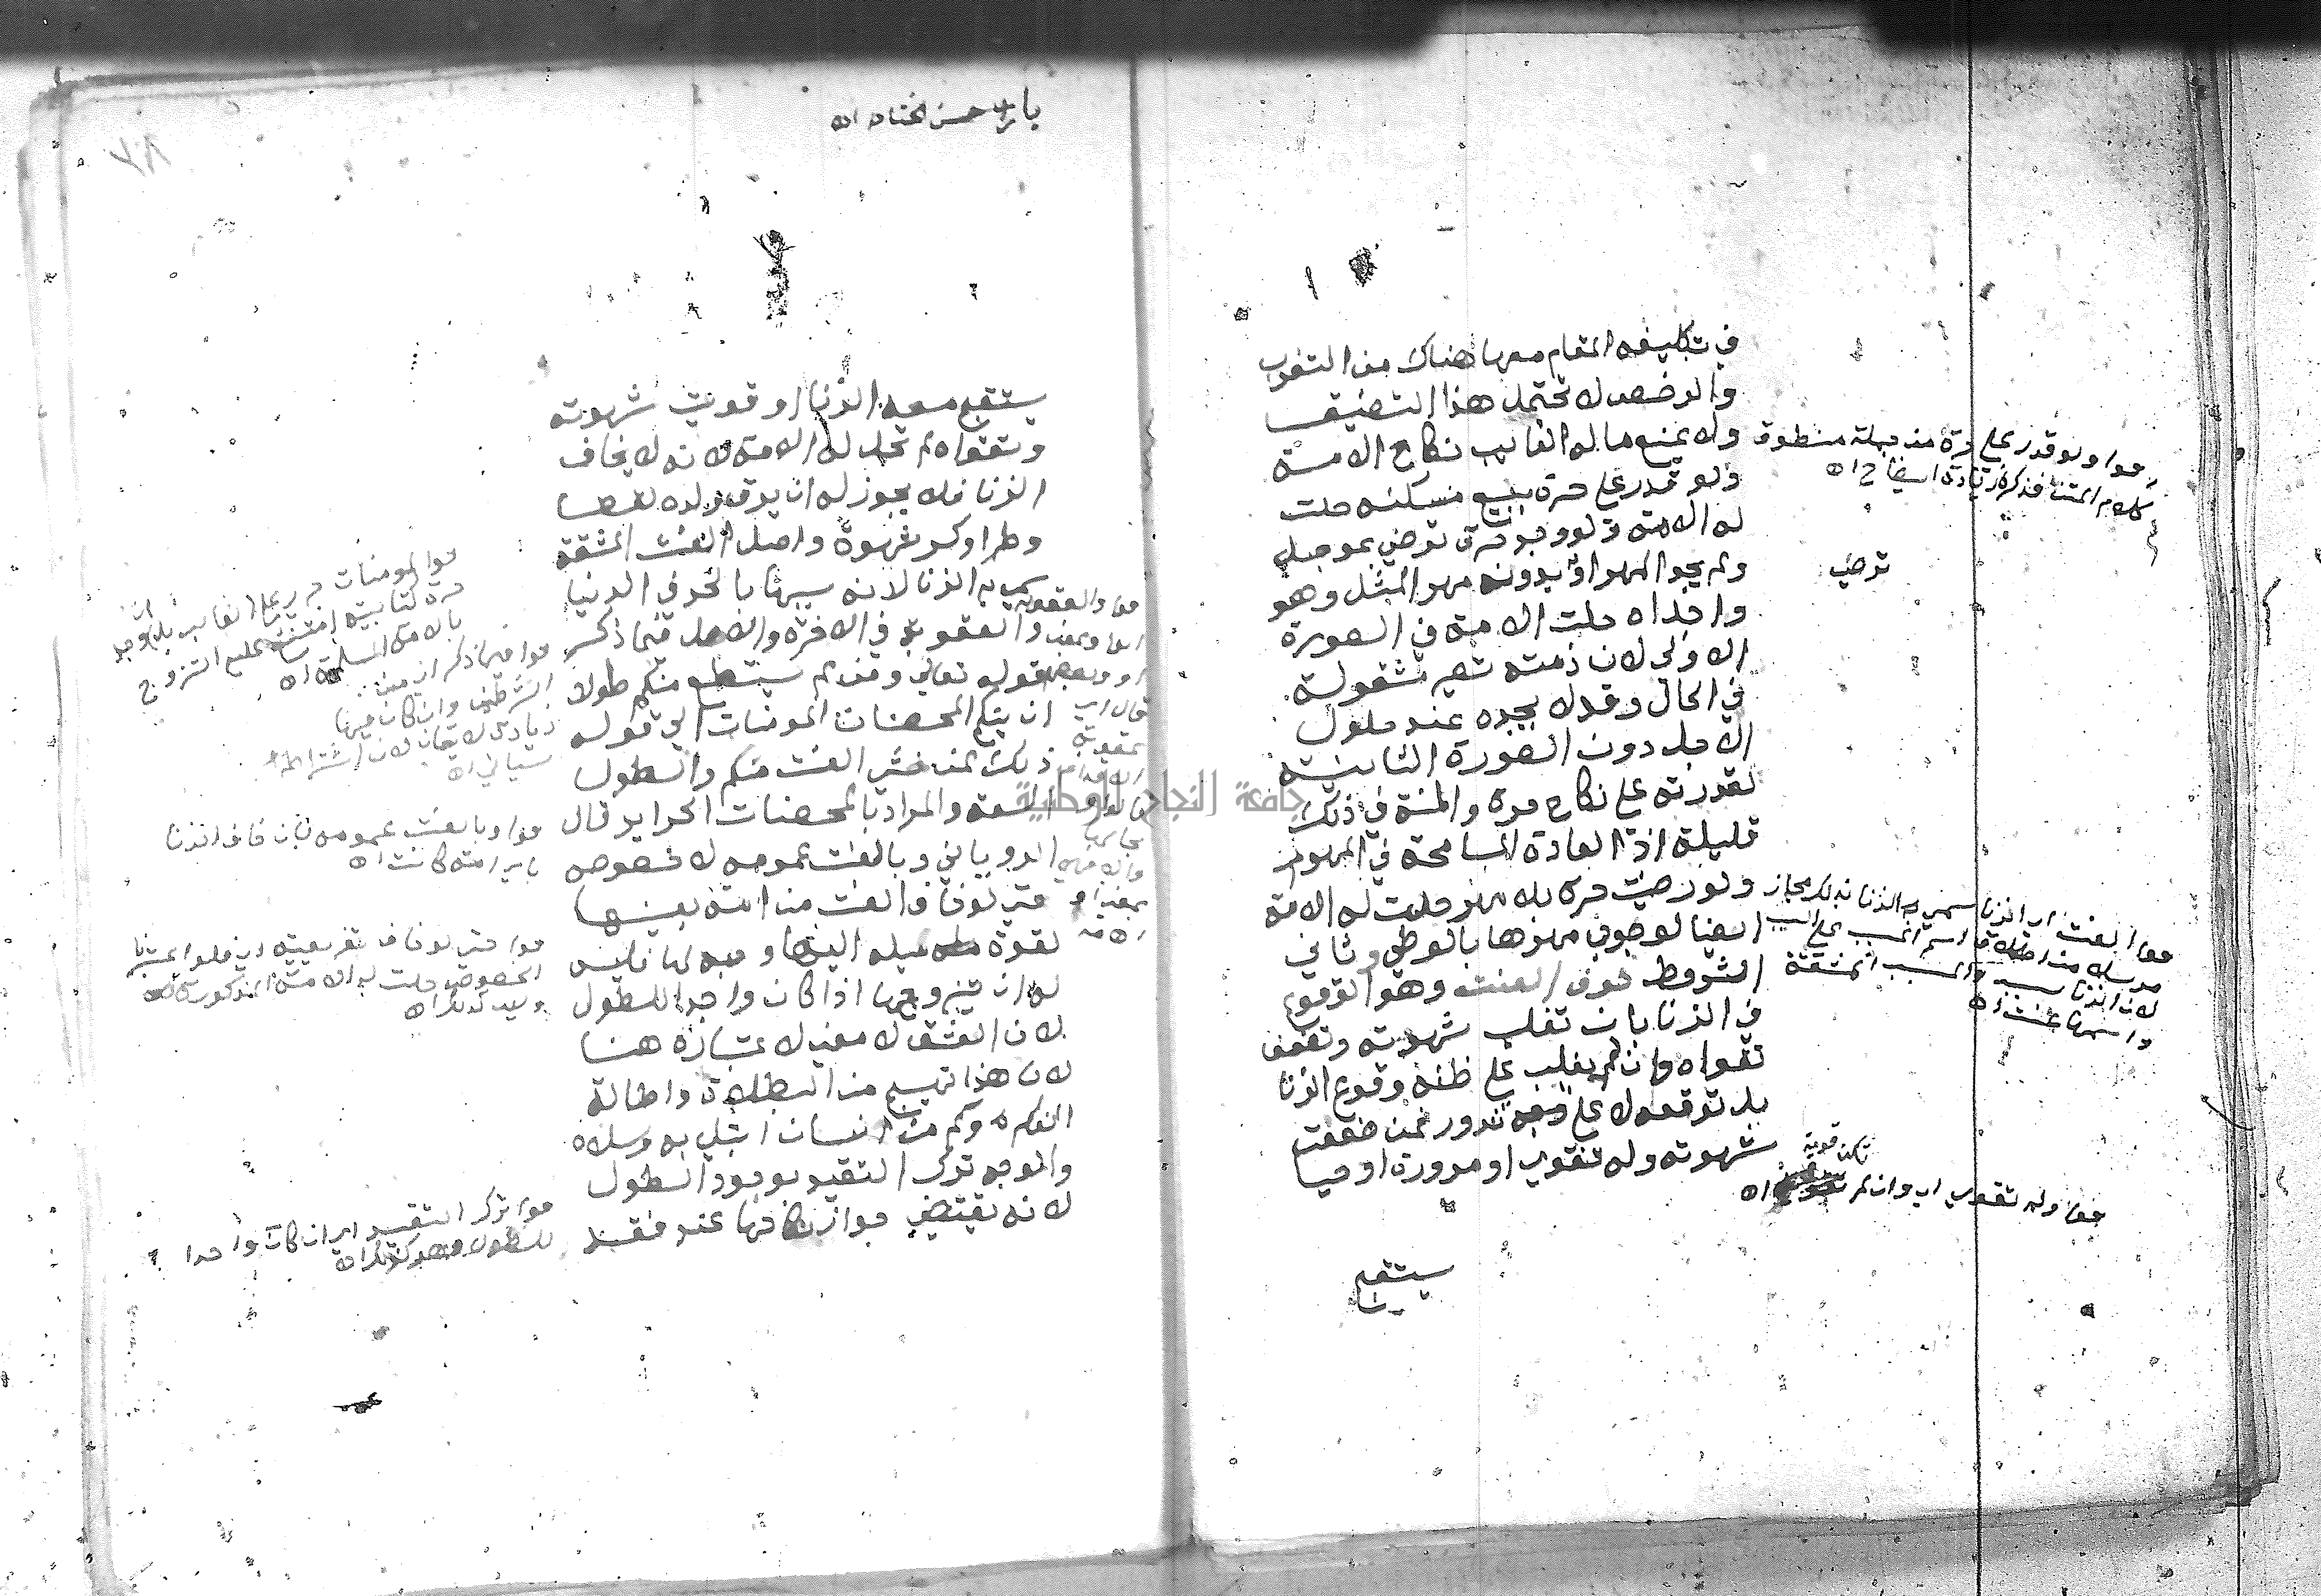 في تكليفه المقام معها هناك من التغرب
والرخصة لا تحتمل هذا التضييق
ولا يمنع ماله الغايب نكاح الامة
ولو قدر على حرة ببيع مسكنه حلت
له الامة ولو وجد حرة ترضى بموجل
ولم يجد المهر او بدون مهر المثل وهو
واجداه حلت الامة في الصورة
الاولى لان ذمته تصير مشغولة
في الحال وقد لا يجده عند حلول
الاجل دون الصورة الثانية
لقدرته على نكاح حرة والمنة في ذلك
قليلة اذ العادة المسامحة في المهور
ولو رضيت حرة بلا مهر حلت له الامة
ايضا لوجوب مهرها بالوطئ وثاني
الشروط خوف العنت وهو الوقوع
في الزنا بان تغلب شهوته وتضعف
تقواه وان لم يغلب على ظنه وقوع الزنا
بل توقعه لا على وجه ندور فمن ضعفت
شهوته وله تقوى او مروءة او حيا
يستقبح
قوله ولو قدر على حرة من جملة منطوق
كلام المتن فذكره زيادة ايضاح اه
ترضى
قوله العنت اي الزنا سمي به الزنا
مرسل من اطلاق اسم المسبب على السبب
لان الزنا سبب والمسبب المشقة
واسمها عنت اه
قوله وله تقوى اي وان لم
تكن قوية اه
باب حسن الختام اه
٧٨
يستقبح معه الزنا او قويت شهوته
وتقواه لم تحل له الامة لانه لا يخاف
الزنا فلا يجوز له ان يرق ولده لقضا
وطر او كسر شهوة واصل العنت المشقة
سمي به الزنا لانه سببها بالحد في الدنيا
والعقوبة في الاخرة والاصل فيما ذكر
قوله تعالى ومن لم يستطع منكم طولا
ان ينكح المحصنات المومنات الى قوله
ذلك لمن خشي العنت منكم والطول
السعة والمراد بالمحصنات الحراير قال
الروياني وبالعنت عمومه لا خصوصه
حتى لو خاف العنت من امة بعينها
لقوة ميله اليها وحبه لها فليس
له ان يتزوجها اذا كان واجدا للطول
لان العشق لا معنى لاعتباره هنا
لان هذا تهييج من البطالة واطالة
الفكر وكم من انسان ابتلي به وسلاه
والوجه ترك التقييد بوجود الطول
لانه يقتضي جواز نكاحها عند فقد
قوله المومنات
حرة كتابية امتنع عليه التزوج
بالامة المسلمة اه
قوله فيما ذكر اي من
الشرطين وان كان فيها
زيادة لان اشتراط
سياتي اه
قوله وبالعنت عمومه بان خاف الزنا
باي امة كانت اه
قوله حتى لو خاف
الخصوص حلت له الامة المذكورة
وليس كذلك اه
قوله ترك التقييد اي ان كان واجدا
للطول كذلك اه
جامعة النجاح الوطنية